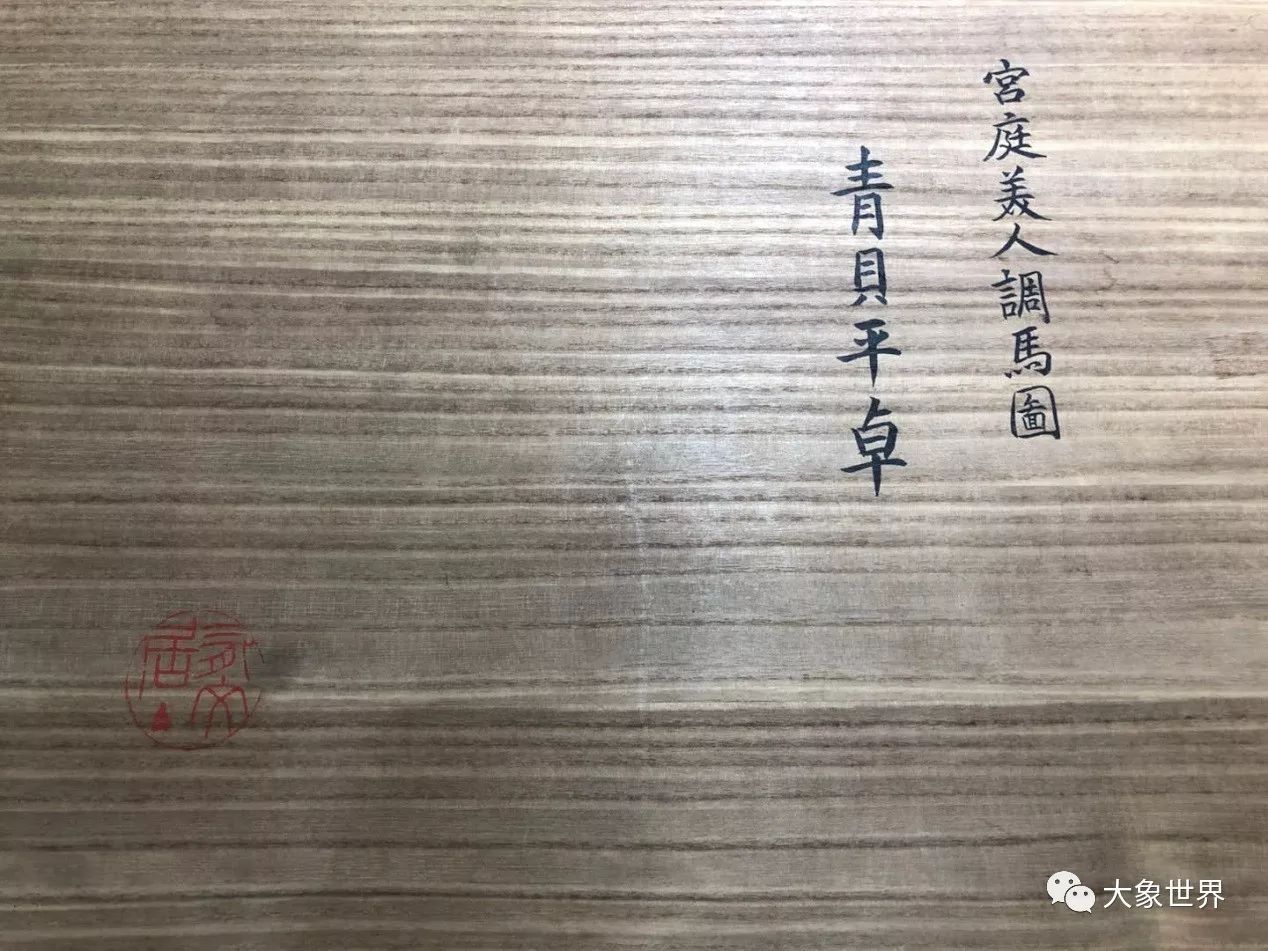 宮庭美人調馬圖
青貝平卓
大象世界